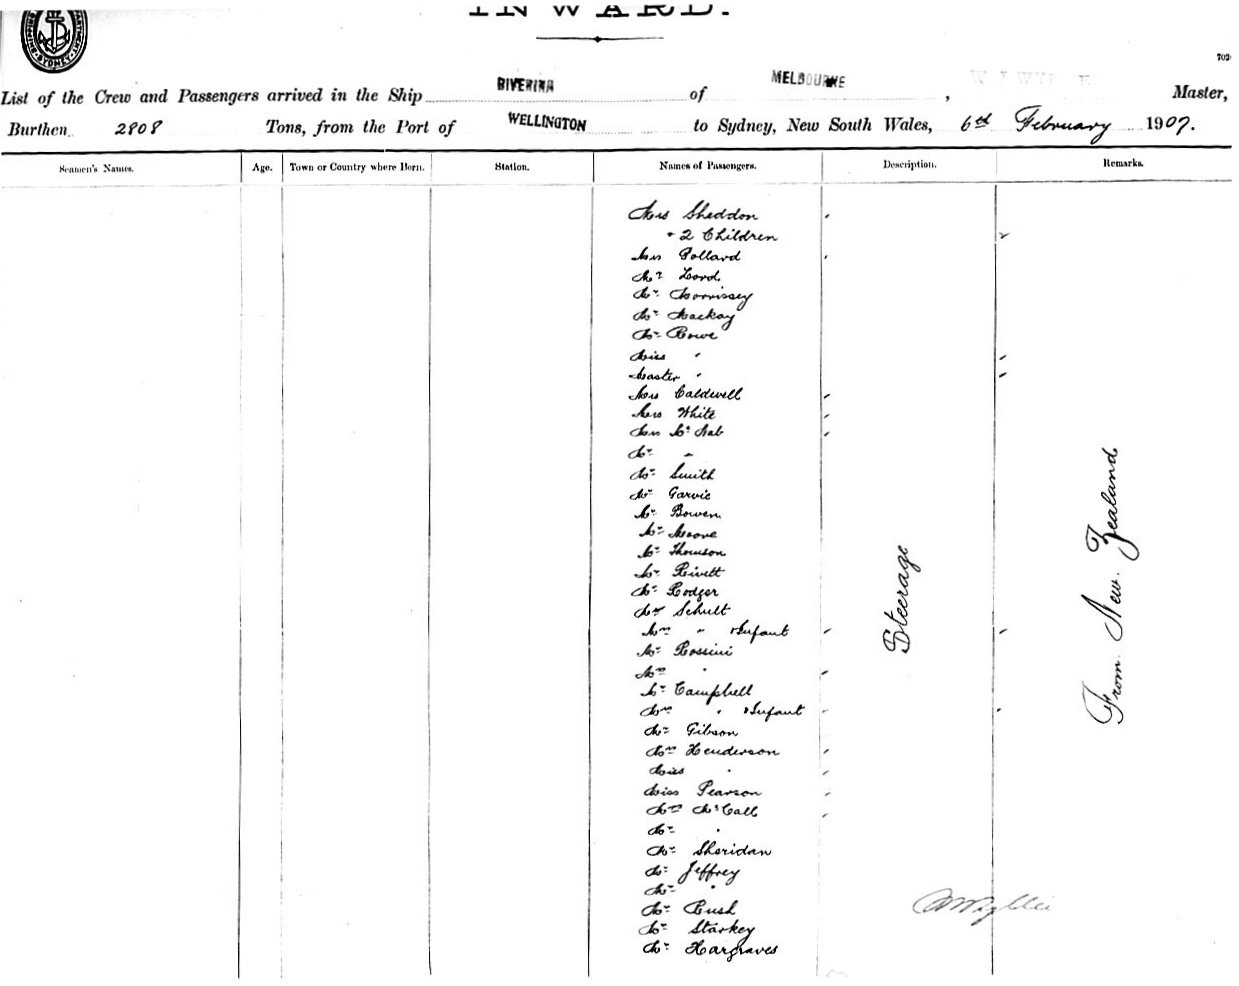 INWARD.
SYDNEY
702
List of the Crew and Passengers arrived in the Ship RIVERINA of MELBOURNE, Master,
Burthen 2808 Tons, from the Port of WELLINGTON to Sydney, New South Wales, 6th February 1907.
Seamen's Names. Age. Town or Country where Born. Station. Names of Passengers. Description. Remarks.
Mrs Sheddon
" 2 Children
Mrs Pollard
Mr Lord
Mr Morrissey
Mr Mackay
Mr Rowe
Miss "
Master "
Mrs Caldwell
Mrs White
Mrs McNab
Mr "
Mr Smith
Mr Garvie
Mr Bowen
Mr Moore
Mr Thomson
Mr Rivett
Mr Rodger
Mr Schult
Mrs " & Infant
Mr Rossini
Mrs "
Mr Campbell
Mrs " & Infant
Mr Gibson
Mrs Henderson
Miss "
Miss Pearson
Mrs McCall
Mr "
Mr Sheridan
Mr Jeffrey
Mr "
Mr Rush
Mr Starkey
Mr Hargraves
Steerage
From New Zealand